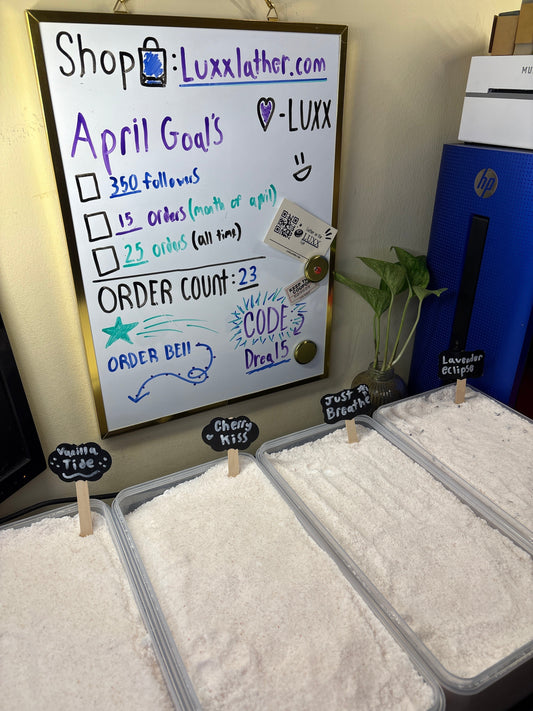 Shop : Luxxlather.com
- LUXX
April Goal's
350 followers
15 orders (month of april)
25 orders (all time)
ORDER COUNT: 23
CODE:
Drea15
ORDER BELL
LUXX
KEEP THE
hp
MU
Vanilla
Tide
Cherry
Kiss
Just
Breathe
Lavender
eclipse